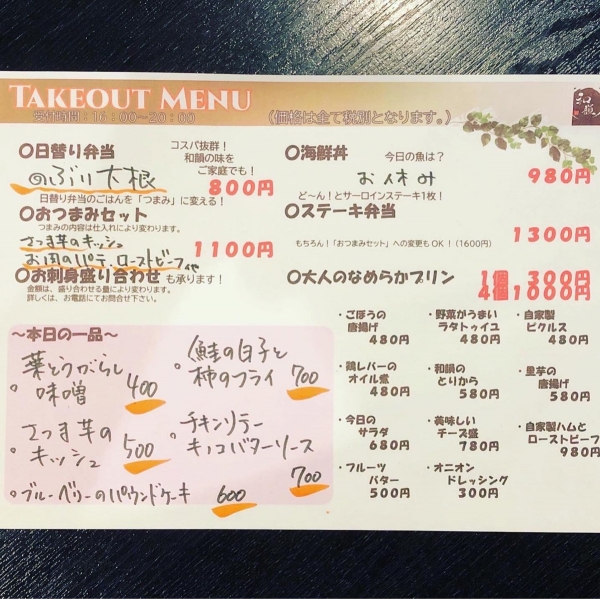 TAKEOUT MENU
受付時間:16:00~20:00
(価格は全て税別となります。)
和韻
〇日替り弁当
コスパ抜群!
和韻の味を
ご家庭でも!
のぶり大根
800円
日替り弁当のごはんを「つまみ」に変える!
〇おつまみセット
つまみの内容は仕入れにより変わります。
さつま芋のキッシュ
お肉のパテ、ローストビーフ他
1100円
〇お刺身盛り合わせ も承ります!
金額は、盛り合わせる量により変わります。
詳しくは、お電話にてお問合せ下さい。
〇海鮮丼
今日の魚は?
お休み
980円
ど~ん!とサーロインステーキ1枚!
〇ステーキ弁当
1300円
もちろん!「おつまみセット」への変更もOK!(1600円)
〇大人のなめらかプリン
1個 300円
4個1000円
~本日の一品~
・葉とうがらし
味噌 400
・鮭の白子と
柿のフライ 700
・さつま芋の
キッシュ 500
・チキンソテー
キノコバターソース
700
・ブルーベリーのパウンドケーキ 600
・ごぼうの
唐揚げ
480円
・野菜がうまい
ラタトゥイユ
480円
・自家製
ピクルス
480円
・鶏レバーの
オイル煮
480円
・和韻の
とりから
580円
・里芋の
唐揚げ
580円
・今日の
サラダ
680円
・美味しい
チーズ盛
780円
・自家製ハムと
ローストビーフ
980円
・フルーツ
バター
500円
・オニオン
ドレッシング
300円